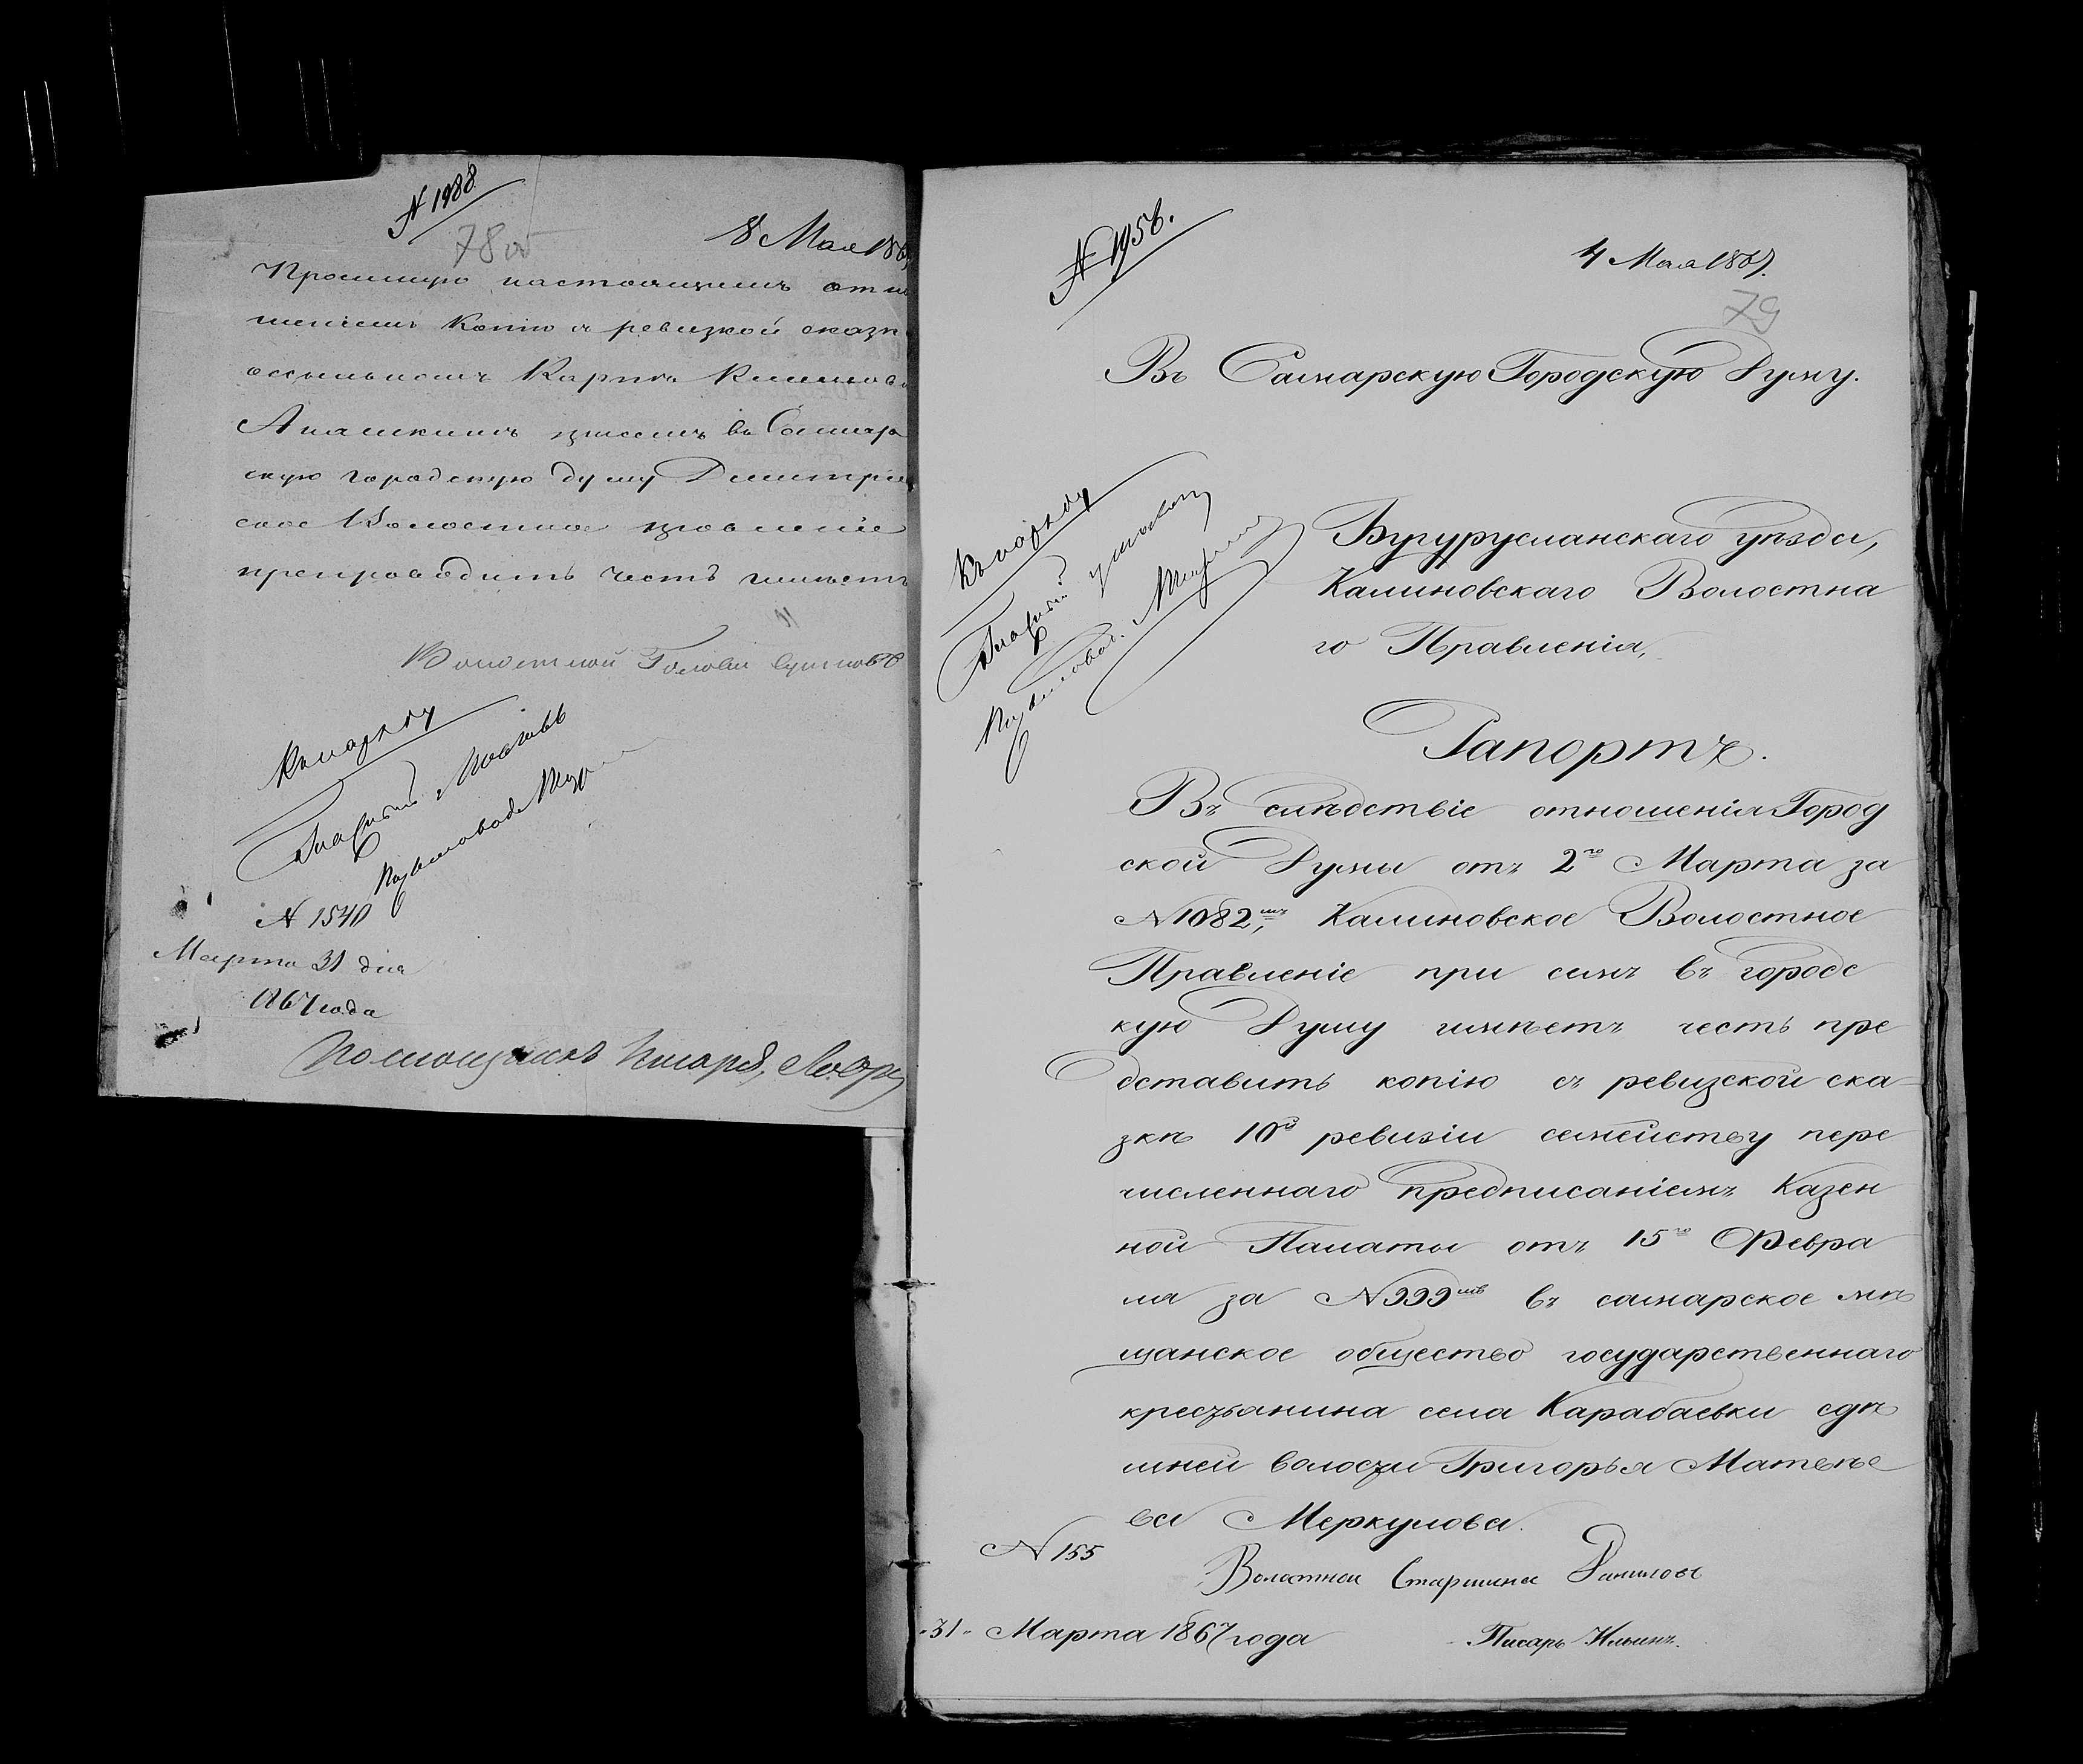 N 1988
78 об
8 Мая 186
Просимую настоящимъ отно
шеніемъ копію съ ревизкой сказки
о ссыльномъ Карпѣ
Анашкинъ при семъ въ Самар
скую городскую думу Дмитріев
ское Волостное правленіе
препроводить честь имѣетъ
Волостной Голова
Къ наряду
Гласный
N 1540
Марта 31 дня
1867 года
Помощникъ Писаря,
N 1956.
4 Мая 1867.
79
Въ Самарскую Городскую Думу.
Къ наряду
Гласный
Бугурусланскаго уѣзда,
Калиновскаго Волостна
го Правленія,
Рапортъ.
Въ слѣдствіе отношенія Город
ской Думы отъ 2го Марта за
N 1082мъ, Калиновское Волостное
Правленіе при семъ въ городс
кую Думу имѣетъ честь пре
дставить копію съ ревизской ска-
зкѣ 10й ревизіи семейству пере
численнаго предписаніемъ Казен
ной Палаты отъ 15го Февра
ля за N 999мъ въ самарское мѣ
щанское общество государственнаго
крестьянина села Карабаевки здѣ
шней волости Григорья Матвѣе
ва Меркулова.
N 155
Волостной Старшина Даниловъ
"31" Марта 1867 года
Писарь Ильинъ.